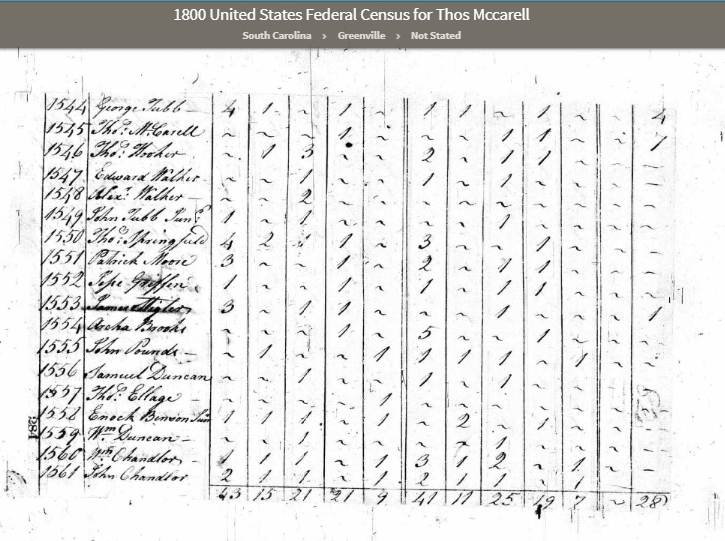 1800 United States Federal Census for Thos Mccarell
South Carolina › Greenville › Not Stated
1544 George Tubb 4 1 ~ 1 ~ 1 1 ~ 1 ~ ~ 4
1545 Thos. McCarell ~ ~ ~ 1 ~ ~ ~ 1 1 ~ ~ 7
1546 Thos. ~ 1 3 ~ ~ 2 ~ 1 1 ~ ~ ~
1547 Edward Walker ~ ~ 1 ~ ~ 1 ~ 1 ~ ~ ~ ~
1548 Alexr. Walker ~ ~ 2 ~ ~ ~ ~ ~ ~ ~ ~ ~
1549 John Tubb Junr. 1 ~ 1 ~ ~ ~ ~ 1 ~ ~ ~ ~
1550 Thos. Springfield 4 2 1 ~ 3 ~ ~ 1 ~ ~ ~
1551 Patrick Moore 3 ~ ~ 1 ~ 2 ~ 1 1 ~ ~ ~
1552 Griffin 1 ~ ~ 1 ~ 1 ~ 1 1 ~ ~ ~
1553 James 3 ~ 1 1 ~ ~ ~ 1 ~ ~ ~ 1
1554 Brooks ~ ~ ~ 1 ~ 5 ~ ~ 1 ~ ~ ~
1555 John Pounds ~ 1 ~ ~ 1 1 1 1 ~ 1 ~ ~
1556 Samuel Duncan ~ ~ 1 ~ ~ 1 ~ 1 ~ ~ ~ ~
1557 Thos. Ellage ~ ~ ~ ~ 1 ~ ~ ~ ~ ~ ~ ~
1558 Enoch Benson 1 1 1 ~ 1 ~ 2 ~ 1 ~ ~ ~
1559 Wm. Duncan ~ ~ 1 ~ ~ ~ ~ 1 ~ ~ ~ ~
1560 Wm. Chandlor 1 1 1 ~ 1 3 1 2 ~ 1 ~ ~
1561 John Chandlor 2 1 1 ~ 1 2 1 1 ~ 1 ~ ~
43 15 21 21 9 41 11 25 19 7 ~ 28